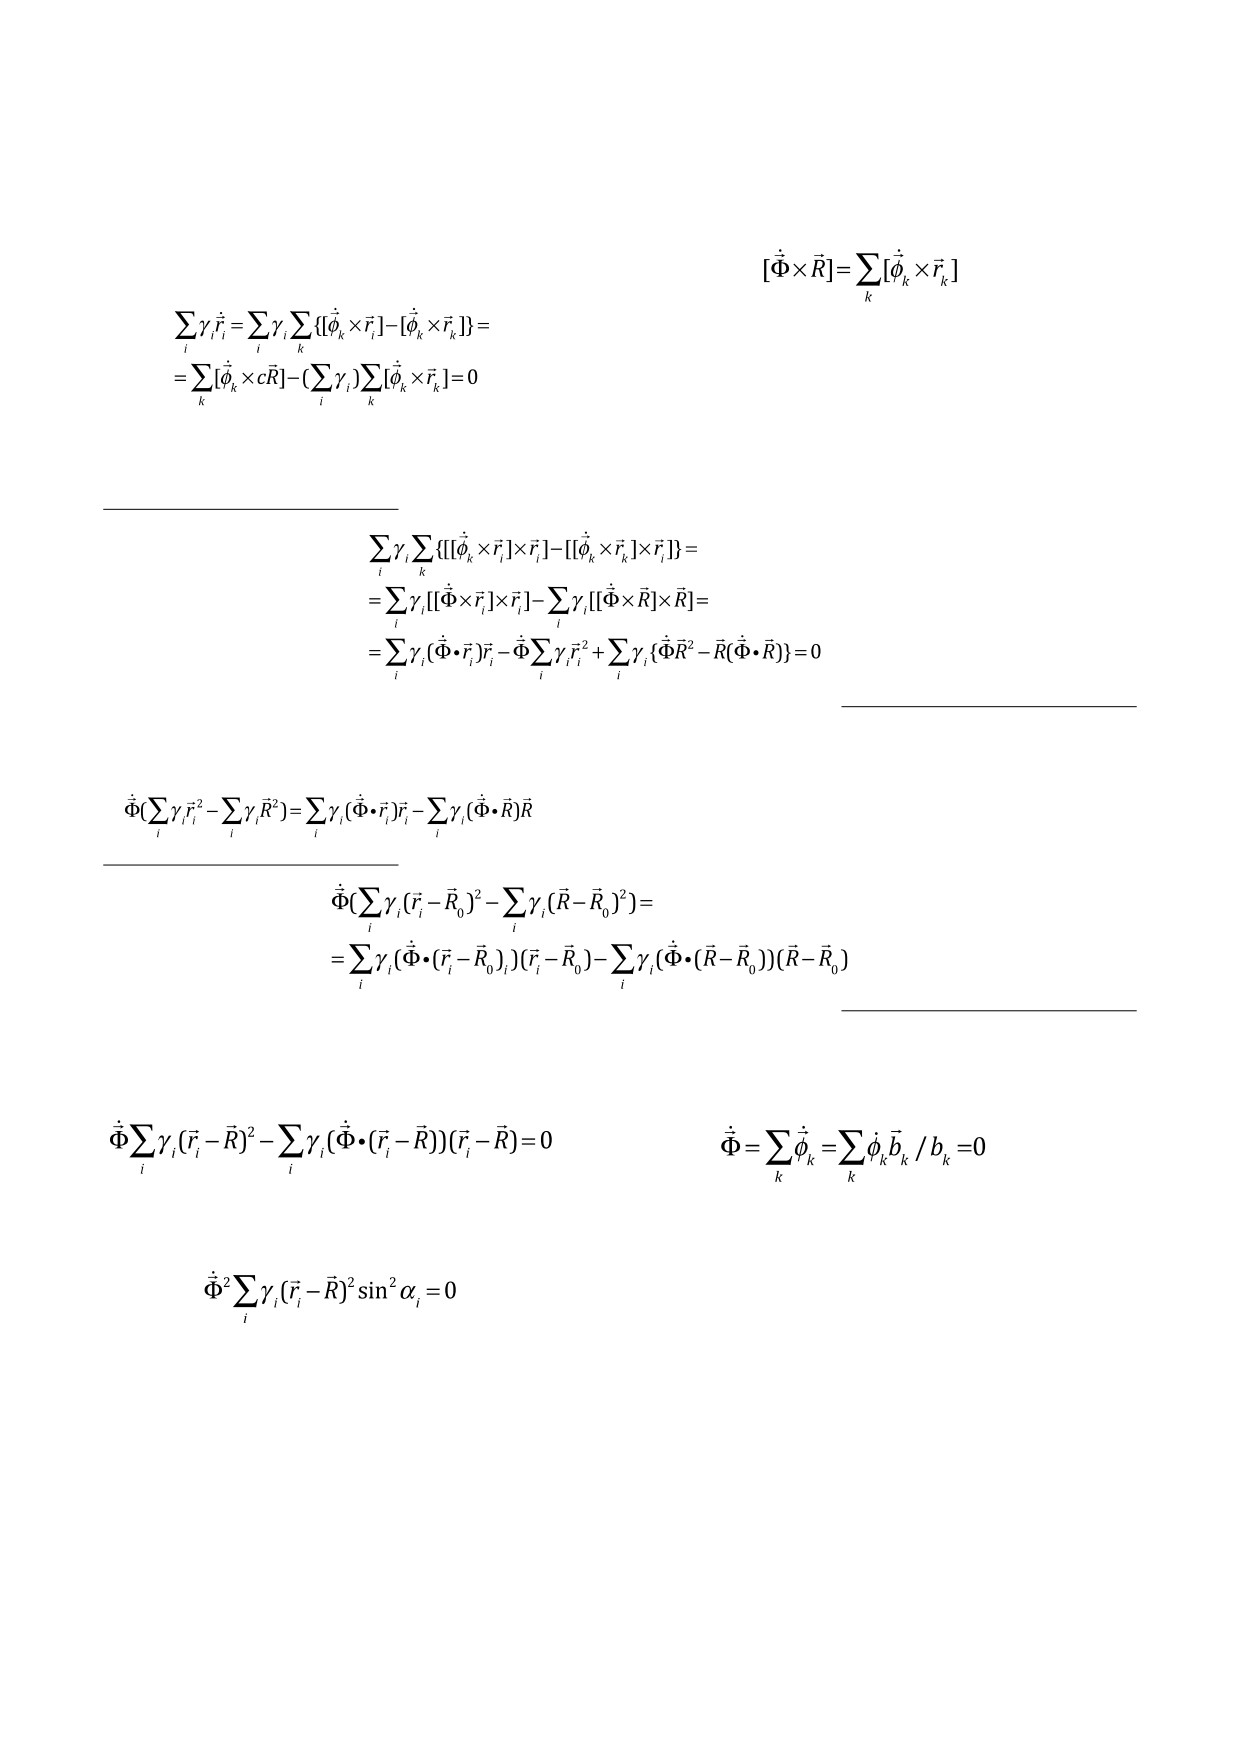 [Φ⃗̇ × R⃗] = ∑_k [ϕ⃗̇_k × r⃗_k]
∑_i γ_i r⃗̇_i = ∑_i γ_i ∑_k {[ϕ⃗̇_k × r⃗_i] − [ϕ⃗̇_k × r⃗_k]} =
= ∑_k [ϕ⃗̇_k × cR⃗] − (∑_i γ_i) ∑_k [ϕ⃗̇_k × r⃗_k] = 0
∑_i γ_i ∑_k {[[ϕ⃗̇_k × r⃗_i] × r⃗_i] − [[ϕ⃗̇_k × r⃗_k] × r⃗_i]} =
= ∑_i γ_i [[Φ⃗̇ × r⃗_i] × r⃗_i] − ∑_i γ_i [[Φ⃗̇ × R⃗] × R⃗] =
= ∑_i γ_i (Φ⃗̇ • r⃗_i) r⃗_i − Φ⃗̇ ∑_i γ_i r⃗_i² + ∑_i γ_i {Φ⃗̇ R⃗² − R⃗(Φ⃗̇ • R⃗)} = 0
Φ⃗̇ (∑_i γ_i r⃗_i² − ∑_i γ_i R⃗²) = ∑_i γ_i (Φ⃗̇ • r⃗_i) r⃗_i − ∑_i γ_i (Φ⃗̇ • R⃗) R⃗
Φ⃗̇ (∑_i γ_i (r⃗_i − R⃗_0)² − ∑_i γ_i (R⃗ − R⃗_0)²) =
= ∑_i γ_i (Φ⃗̇ • (r⃗_i − R⃗_0)_i)(r⃗_i − R⃗_0) − ∑_i γ_i (Φ⃗̇ • (R⃗ − R⃗_0))(R⃗ − R⃗_0)
Φ⃗̇ ∑_i γ_i (r⃗_i − R⃗)² − ∑_i γ_i (Φ⃗̇ • (r⃗_i − R⃗))(r⃗_i − R⃗) = 0
Φ⃗̇ = ∑_k ϕ⃗̇_k = ∑_k ϕ̇_k b⃗_k / b_k = 0
Φ⃗̇² ∑_i γ_i (r⃗_i − R⃗)² sin² α_i = 0